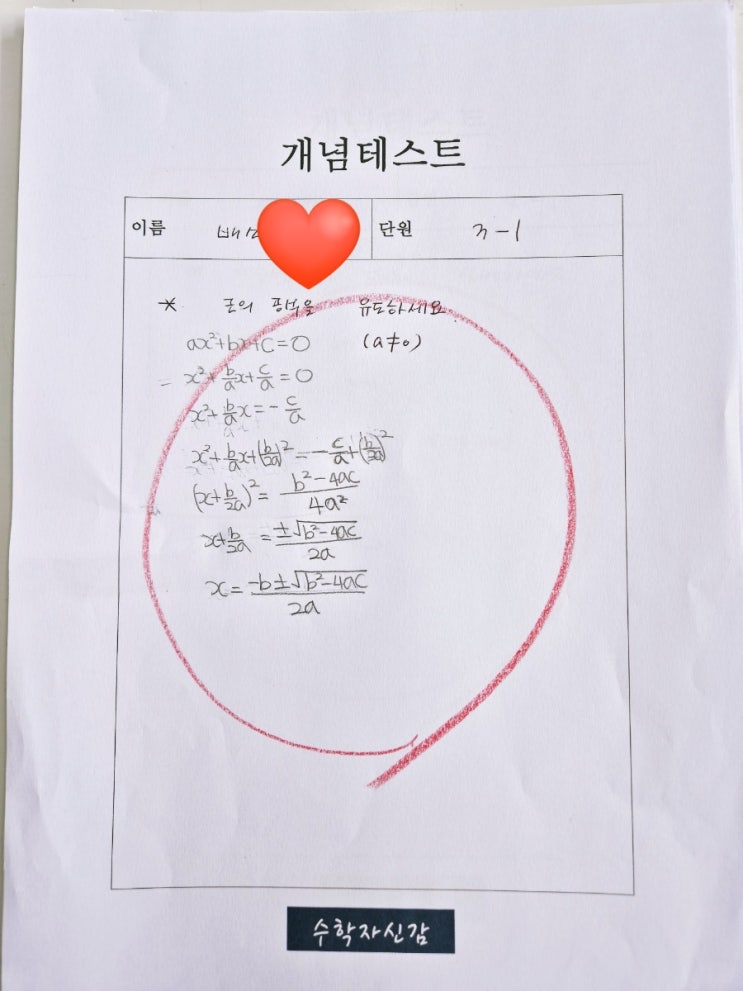 개념테스트
이름 배 단원 3-1
* 근의 공식을 유도하세요.
ax²+bx+c=0 (a≠0)
= x²+b/a x+c/a=0
x²+b/a x=-c/a
x²+b/a x+(b/2a)²=-c/a+(b/2a)²
(x+b/2a)²=b²-4ac/4a²
x+b/2a=±√b²-4ac/2a
x=-b±√b²-4ac/2a
수학자신감